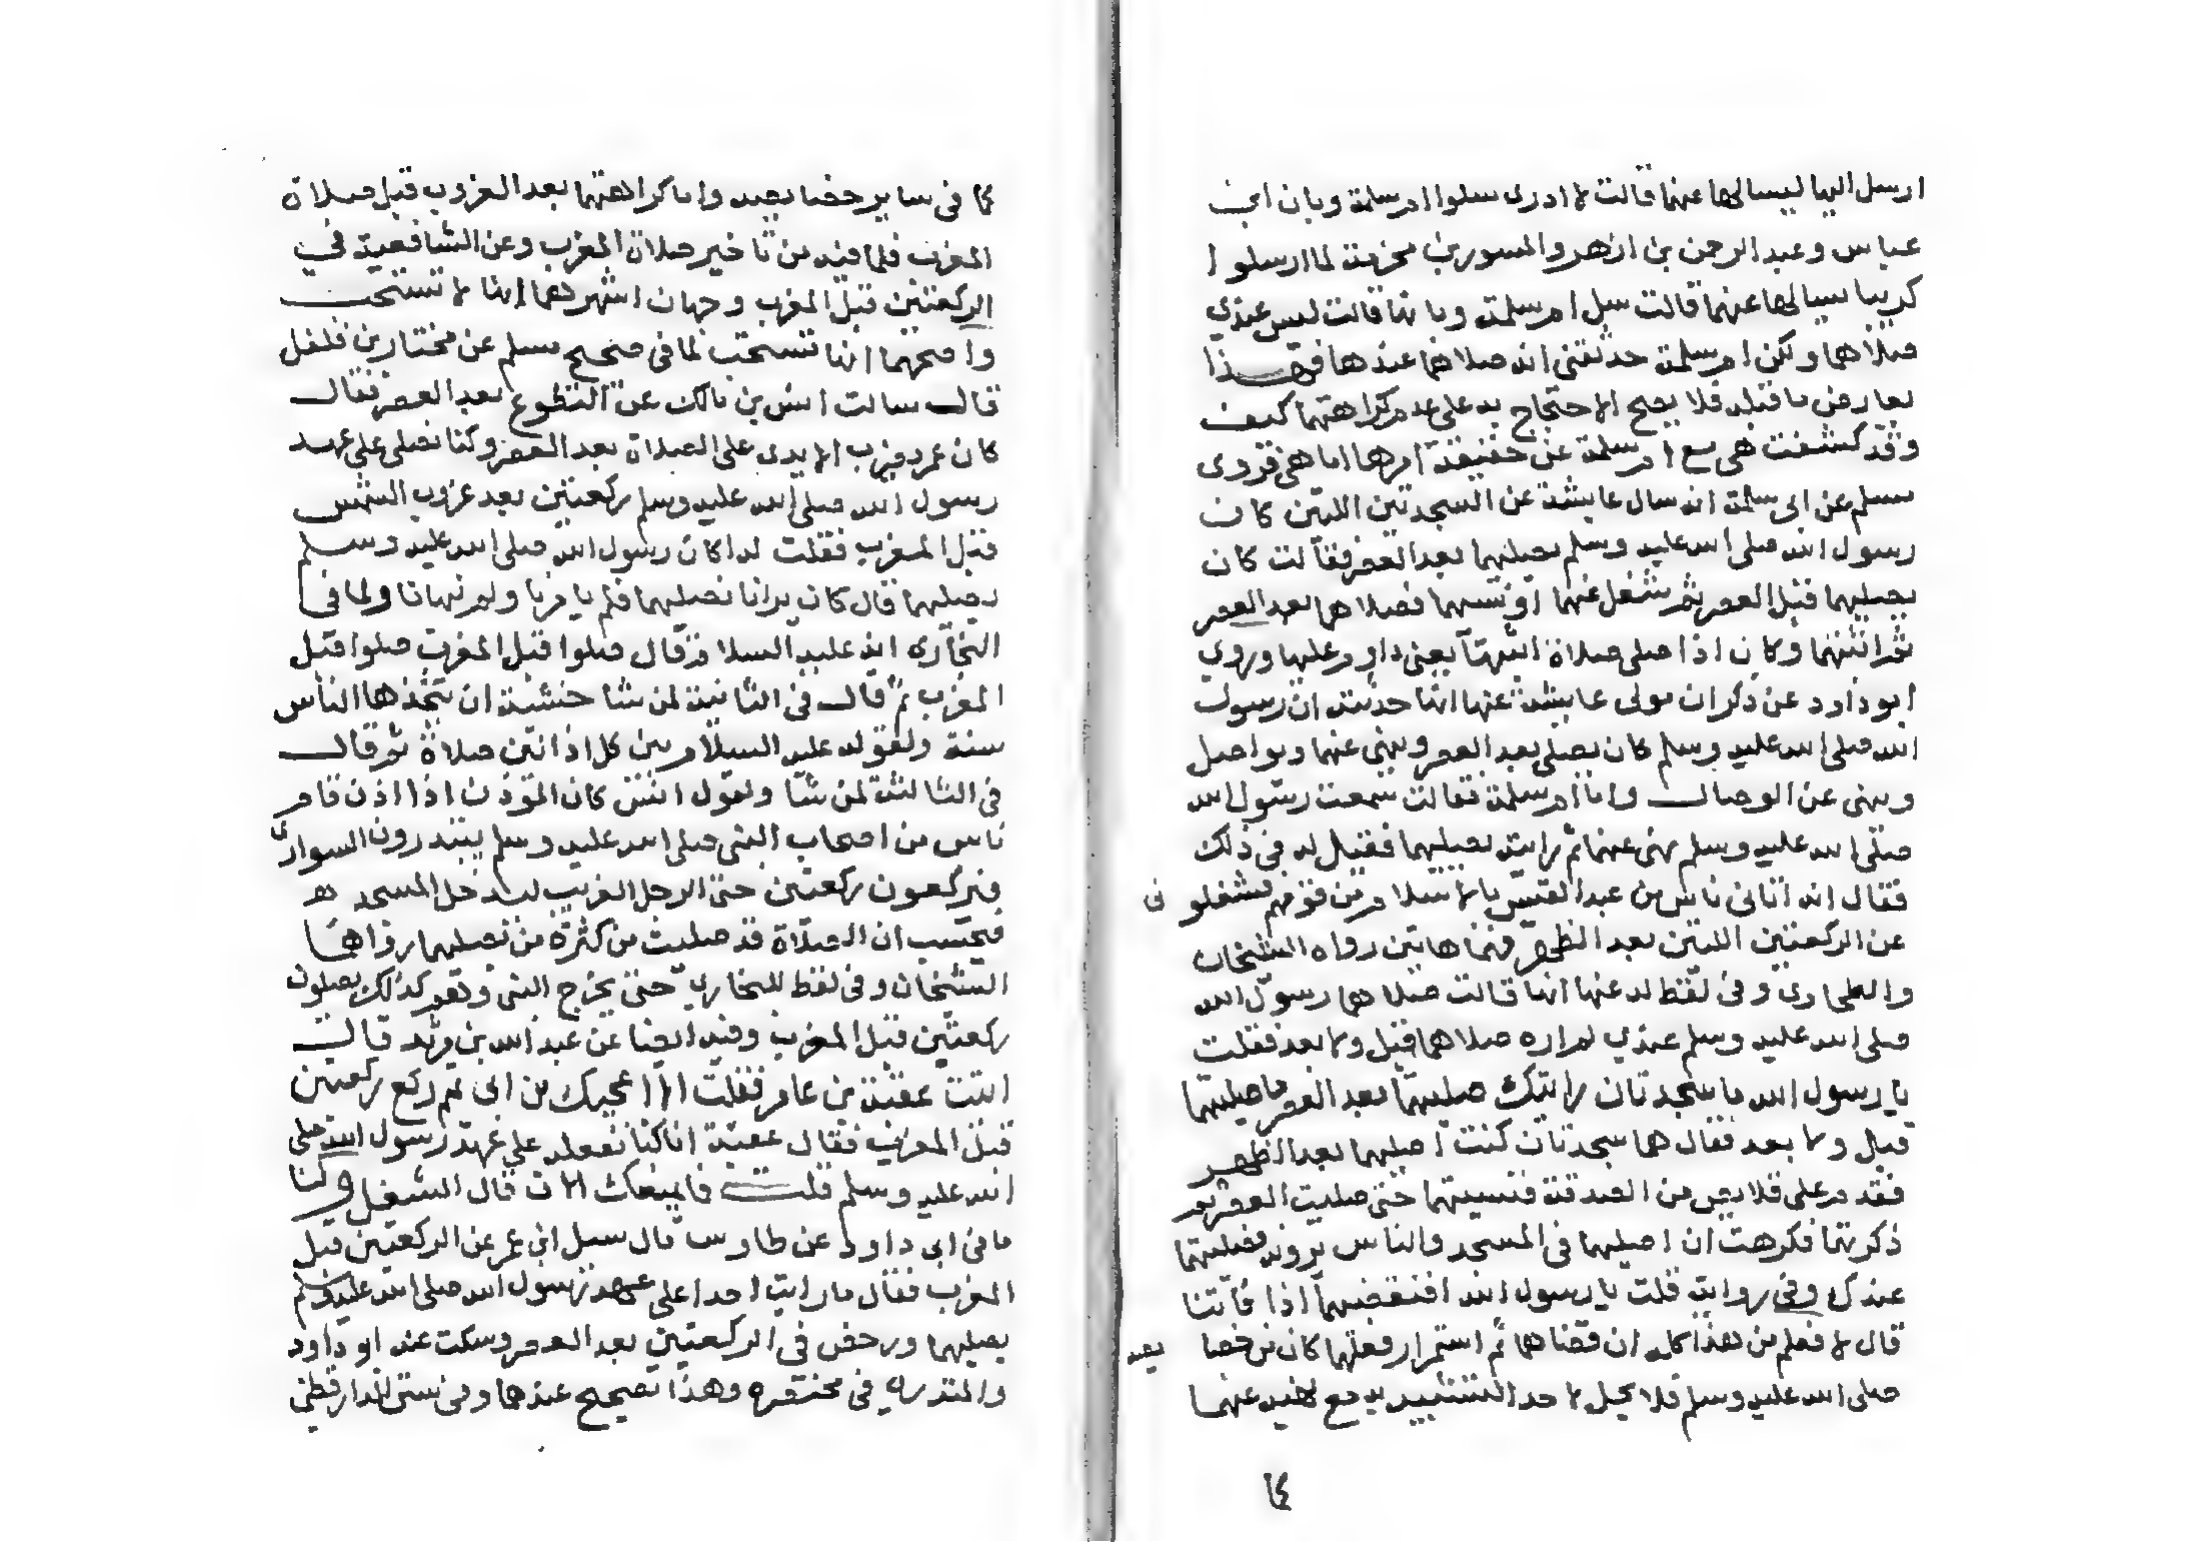 ارسل اليها ليسالها عنها فقالت لا ادرى سلوا ام سلمة وبان ابن
عباس وعبد الرحمن بن ازهر والمسور بن مخرمة لما ارسلوا
كريبا يسالها عنهما قالت سل ام سلمة وبانها قالت ليس عندي
صلاهما ولكن ام سلمة حدثتنى انه صلاهما عندها فهذا
يعارض ما قبله فلا يصح الاحتجاج به على عدم كراهتهما كيف
وقد كشفت هى مع ام سلمة عن حقيقة امرها اما هى فروى
مسلم عن ابى سلمة انه سال عايشة عن السجدتين اللتين كان
رسول الله صلى الله عليه وسلم يصليهما بعد العصر فقالت كان
يصليهما قبل العصر ثم شغل عنهما او نسيهما فصلاهما بعد العصر
ثم اثبتهما وكان اذا صلى صلاة اثبتها يعنى داوم عليها وروي
ابو داود عن ذكوان مولى عايشة عنها انها حدثته ان رسول
الله صلى الله عليه وسلم كان يصلى بعد العصر وينهى عنها ويواصل
وينهى عن الوصال واما ام سلمة فقالت سمعت رسول الله
صلى الله عليه وسلم نهى عنهما ثم رايته يصليهما فقيل له فى ذلك
فقال انه اتانى ناس من عبد القيس بالاسلام من قومهم فشغلونى
عن الركعتين اللتين بعد الظهر فهما هاتين رواه الشيخان
والطحاوى وفى لفظ له عنها انها قالت صلاهما رسول الله
صلى الله عليه وسلم عندي لم اراه صلاهما قبل ولا بعد فقلت
يا رسول الله ما سجدتان رايتك صليتهما بعد العصر ما صليتهما
قبل ولا بعد فقال هما سجدتان كنت اصليهما بعد الظهر
فقدم على قلايص من الصدقة فنسيتهما حتى صليت العصر ثم
ذكرتهما فكرهت ان اصليهما فى المسجد والناس يرونى فصليتهما
عندك وفى رواية قلت يا رسول الله افنقضيهما اذا فاتتنا
قال لا فعلم من هذا كله ان قضاهما ثم استمرار فعلها كان من خصايصه
صلى الله عليه وسلم فلا يحل لاحد التشبيه به مع نهيه عنهما
كما
كما فى ساير خصايصه واما كراهتهما بعد الغروب قبل صلاة
المغرب فلما فيه من تاخير صلاة المغرب وعن الشافعية في
الركعتين قبل المغرب وجهان اشهرهما انها لا تستحب
واصحهما انها تستحب لما فى صحيح مسلم عن مختار بن فلفل
قال سالت انس بن مالك عن التطوع بعد العصر فقال
كان عمر يضرب الايدى على الصلاة بعد العصر وكنا نصلى على عهد
رسول الله صلى الله عليه وسلم ركعتين بعد غروب الشمس
قبل المغرب فقلت له اكان رسول الله صلى الله عليه وسلم
يصليهما قال كان يرانا نصليهما فلم يامرنا ولم ينهانا ولما فى
البخارى انه عليه السلام قال صلوا قبل المغرب صلوا قبل
المغرب ثم قال فى الثانية لمن شا خشية ان يتخذها الناس
سنة ولقوله عليه السلام بين كل اذانين صلاة ثم قال
فى الثالثة لمن شا ولقول انس كان المؤذن اذا اذن قام
ناس من اصحاب النبى صلى الله عليه وسلم يبتدرون السوارى
فيركعون ركعتين حتى الرجل الغريب ليدخل المسجد
فيحسب ان الصلاة قد صليت من كثرة من يصليهما رواها
الشيخان وفى لفظ للبخاري حتى يخرج النبى وهم كذلك يصلون
ركعتين قبل المغرب وفيه ايضا عن عبد الله بن يزيد قال
اتيت عقبة بن عامر فقلت الا اعجبك من ابى تميم ركع ركعتين
قبل المغرب فقال عقبة انا كنا نفعله على عهد رسول الله صلى
الله عليه وسلم قلت فما يمنعك الان قال الشغل ولنا
ما فى ابى داود عن طاوس قال سيل ابن عمر عن الركعتين قبل
المغرب فقال ما رايت احدا على عهد رسول الله صلى الله عليه وسلم
يصليهما ورخص فى الركعتين بعد العصر وسكت عنه ابو داود
والمنذرى فى مختصره وهذا تصحيح عندهما وفى سنن الدارقطني